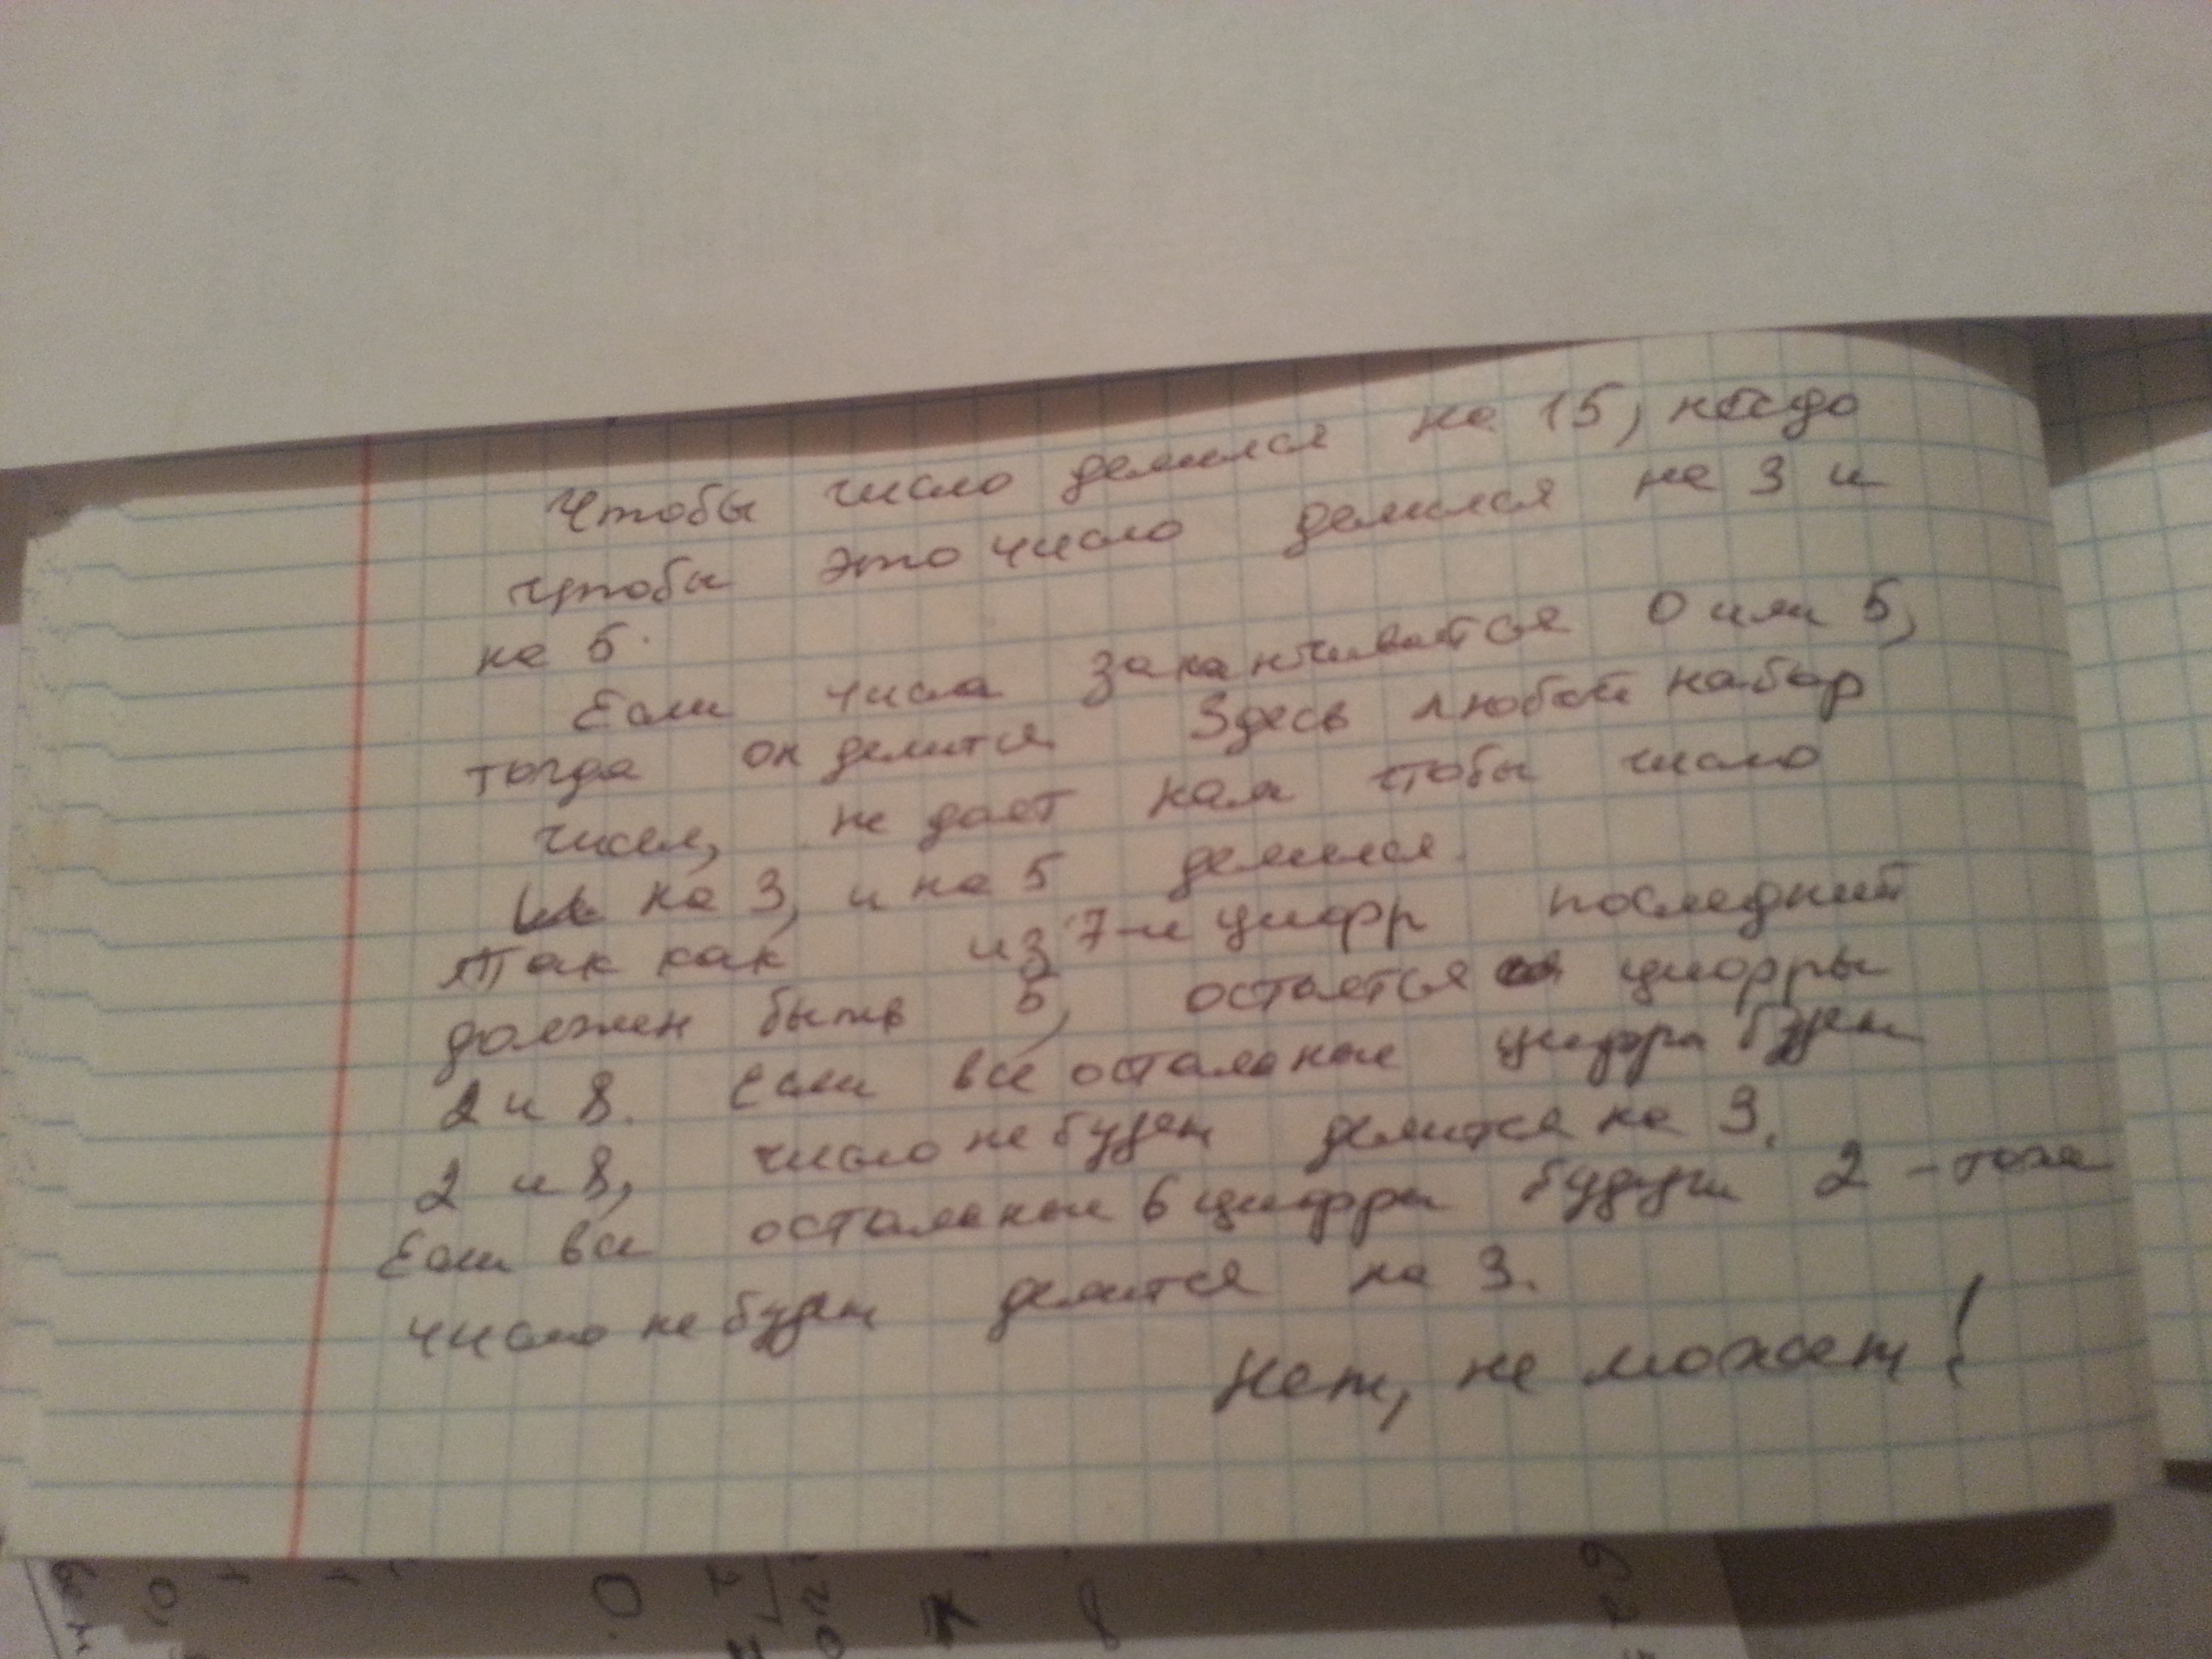 Чтобы число делился на 15, надо
чтобы это число делился на 3 и
на 5.
Если числа заканчивается 0 или 5,
тогда он делится. Здесь любой набор
чисел, не дает нам чтобы число
на 3, и на 5 делился.
Так как из 7-и цифр последний
должен быть 5, остается цифры
2 и 8. Если все остальные цифры будет
2 и 8, число не будет делится на 3.
Если все остальные 6 цифры будут 2 - тоже
число не будет делится на 3.
Нет, не может!